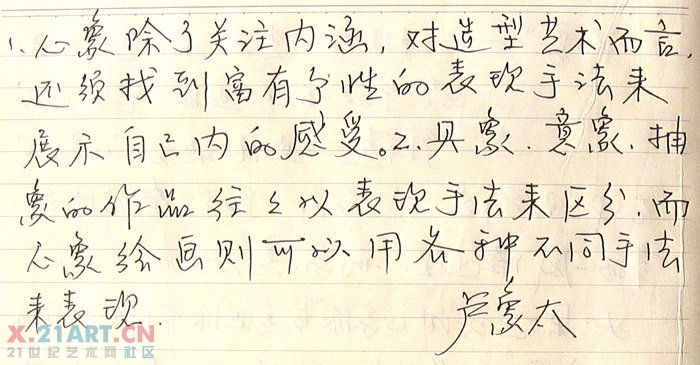 1.心象除了关注内涵,对造型艺术而言,
还须找到富有个性的表现手法来
展示自己内的感受。2.具象.意象.抽
象的作品往々以表现手法来区分.而
心象绘画则可以用各种不同手法
来表现.
芦象太
X.21ART.CN
21世纪艺术网 社区